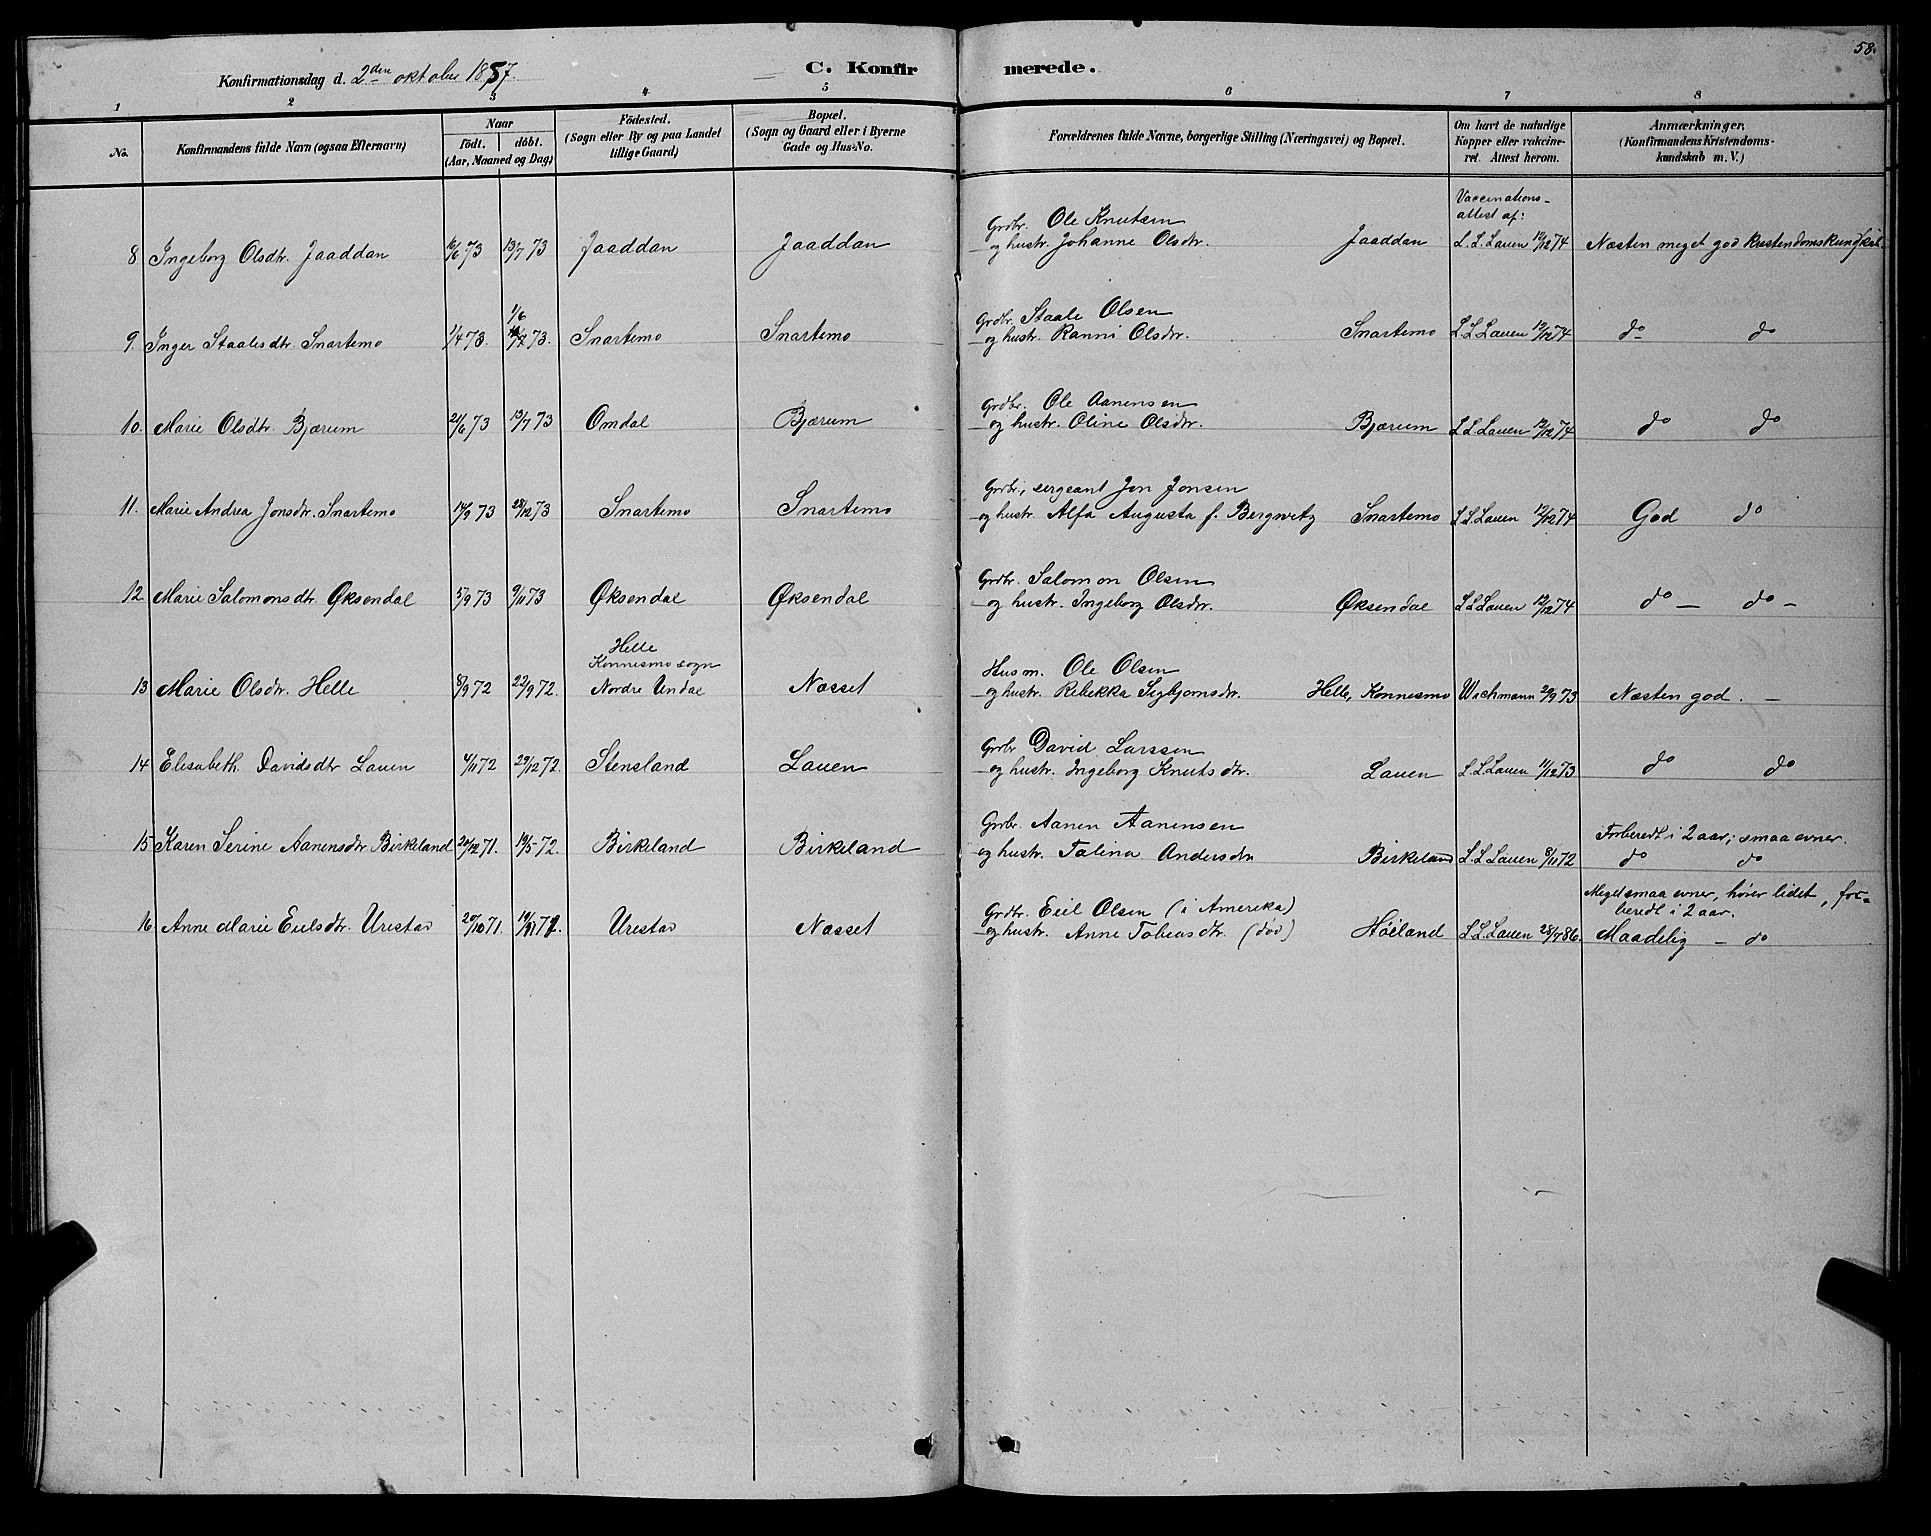 58.
Konfirmationsdag d. 2den oktober 1887.
C. Konfirmerede.
1 2 3 4 5 6 7 8
No.
Konfirmandens fulde Navn (ogsaa Efternavn)
Naar
födt. döbt.
(Aar, Maaned og Dag)
Födested.
(Sogn eller By og paa Landet
tillige Gaard)
Bopæl.
(Sogn og Gaard eller i Byerne
Gade og Hus-No.
Forældrenes fulde Navne, borgerlige Stilling (Næringsvei) og Bopæl.
Om havt de naturlige
Kopper eller vakcine-
ret. Attest herom.
Anmærkninger,
(Konfirmandens Kristendoms-
kundskab m. V.)
Vaccinations-
attest af:
Grdbr. Ole Knutsen
8 Ingeborg Olsdtr. Jaaddan 16/6 73 13/7 73 Jaaddan Jaaddan og hustr. Johanne Olsdtr. Jaaddan L.L. Lauen 12/12 74 Næsten meget god kristendomskundskab.
1/6
Grdbr. Staale Olsen
9. Inger Staalesdtr. Snartemo 1/4 73. 73. Snartemo Snartemo og hustr. Ranni Olsdtr. Snartemo L.L. Lauen 12/12 74 do do
Grdbr. Ole Aanensen
10. Marie Olsdtr. Bjærum 21/6 73 13/7 73 Omdal Bjærum og hustr. Oline Olsdtr. Bjærum L.L. Lauen 12/12 74 do do
Grdbr., sergeant Jon Jonsen
11. Marie Andrea Jonsdtr. Snartemo 14/9 73 28/12 73 Snartemo Snartemo og hustr. Alfa Augusta f. Bergwitz Snartemo L.L. Lauen 12/12 74 God do
Grdbr. Salomon Olsen
12 Marie Salomonsdtr. Øksendal 5/9 73 9/11 73 Øksendal Øksendal og hustr. Ingeborg Olsdtr. Øksendal L.L. Lauen 12/12 74 do — do —
Helle
Konnesmo sogn
Husm. Ole Olsen
13 Marie Olsdtr. Helle 8/9 72 22/9 72. Nordre Undal Næsset og hustr. Rebekka Sigbjørnsdtr. Helle, Konnesmo Wichmann 20/9 73 Næsten god. —
Grdbr. David Larssen
14 Elisabeth Davidsdtr Lauen 4/11 72 29/12 72. Stensland Lauen og hustr. Ingeborg Knutsdtr. Lauen L.L. Lauen 11/12 73 do do
Grdbr. Aanen Aanensen
Forberedt i 2 aar; smaa evner.
15 Karen Serine Aanensdtr Birkeland 20/12 71. 19/5 72. Birkeland Birkeland og hustr. Talina Andersdtr Birkeland L.L. Lauen 8/11 72 do do
Meget smaa evner, hører lidet, for-
beredt i 2 aar.
Grdbr. Eiel Olsen (i Amerika)
16 Anne Marie Eielsdtr. Urestad 20/10 71. Urestad Næsset og hustr. Anne Tobiasdtr. (død) Høiland L.L. Lauen 28/7 86. Maadelig — do